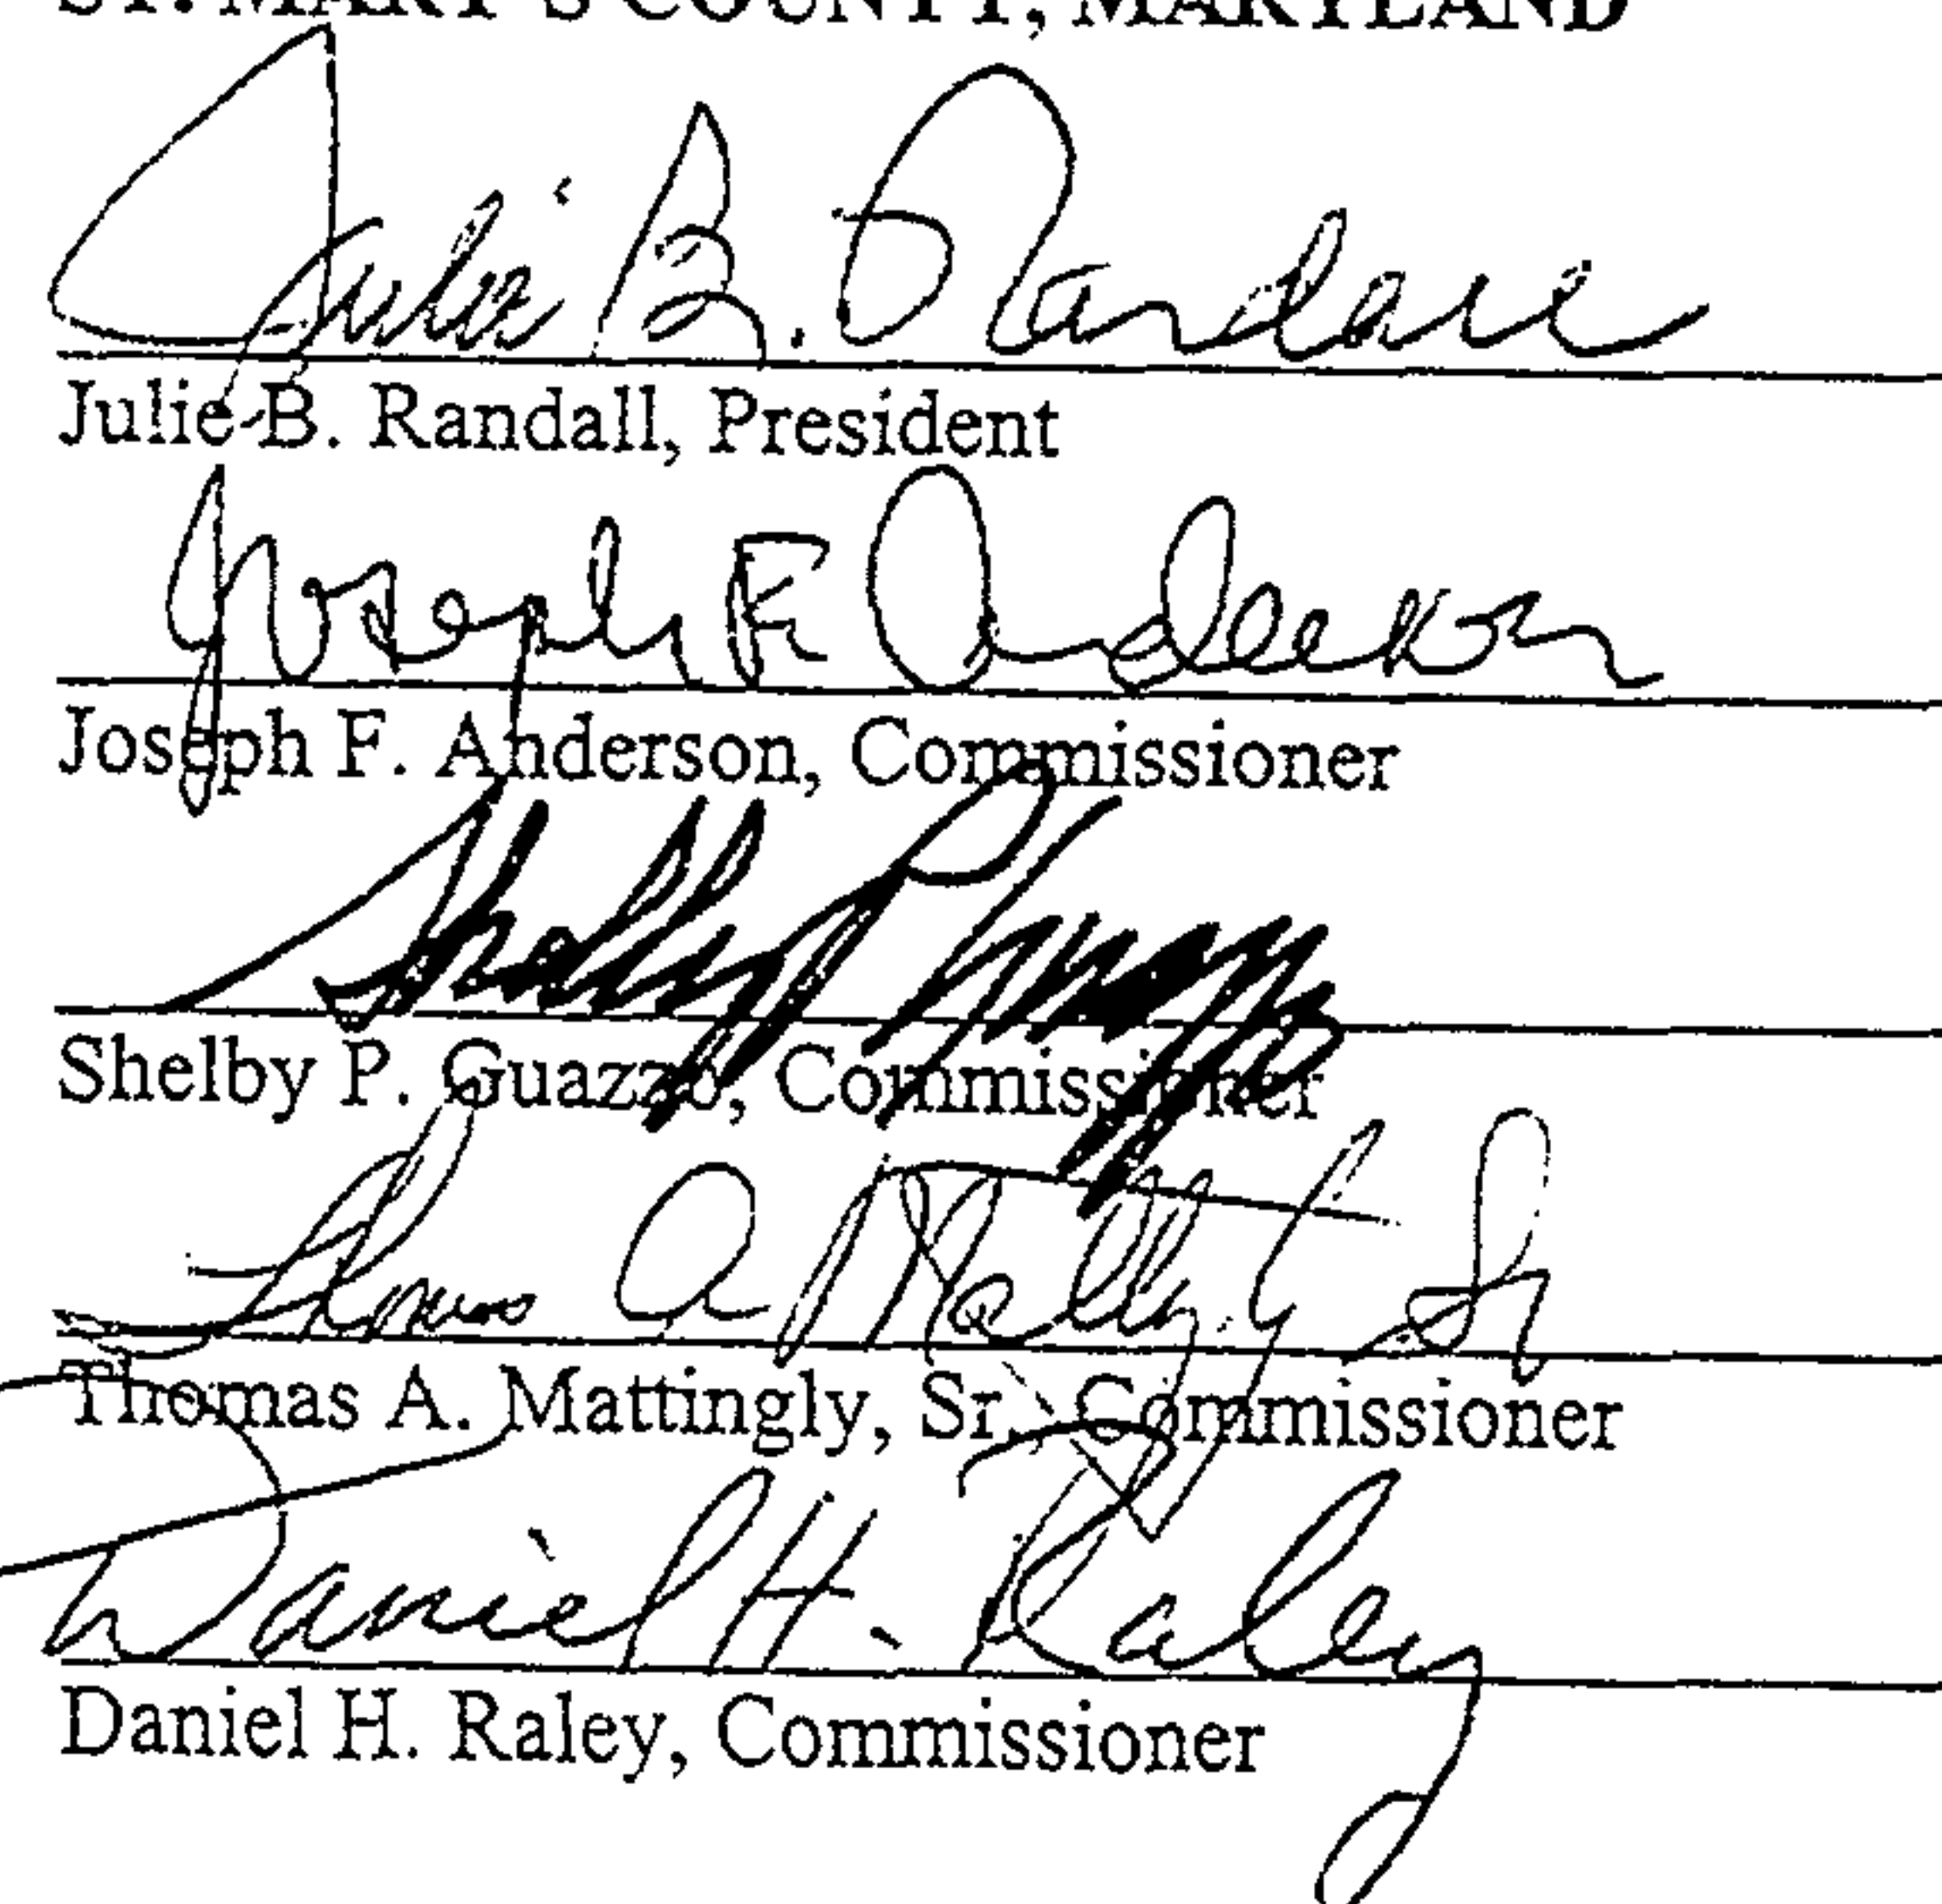 ST. MARY'S COUNTY, MARYLAND
Julie B. Randall
Julie B. Randall, President
Joseph F. Anderson
Joseph F. Anderson, Commissioner
Shelby P. Guazzo
Shelby P. Guazzo, Commissioner
Thomas A. Mattingly Sr
Thomas A. Mattingly, Sr., Commissioner
Daniel H. Raley
Daniel H. Raley, Commissioner